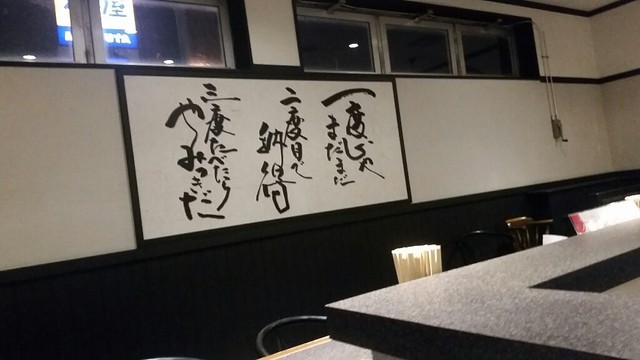 一度じゃ
まだまだ
二度目で
納得
三度たべたら
やみつきだー